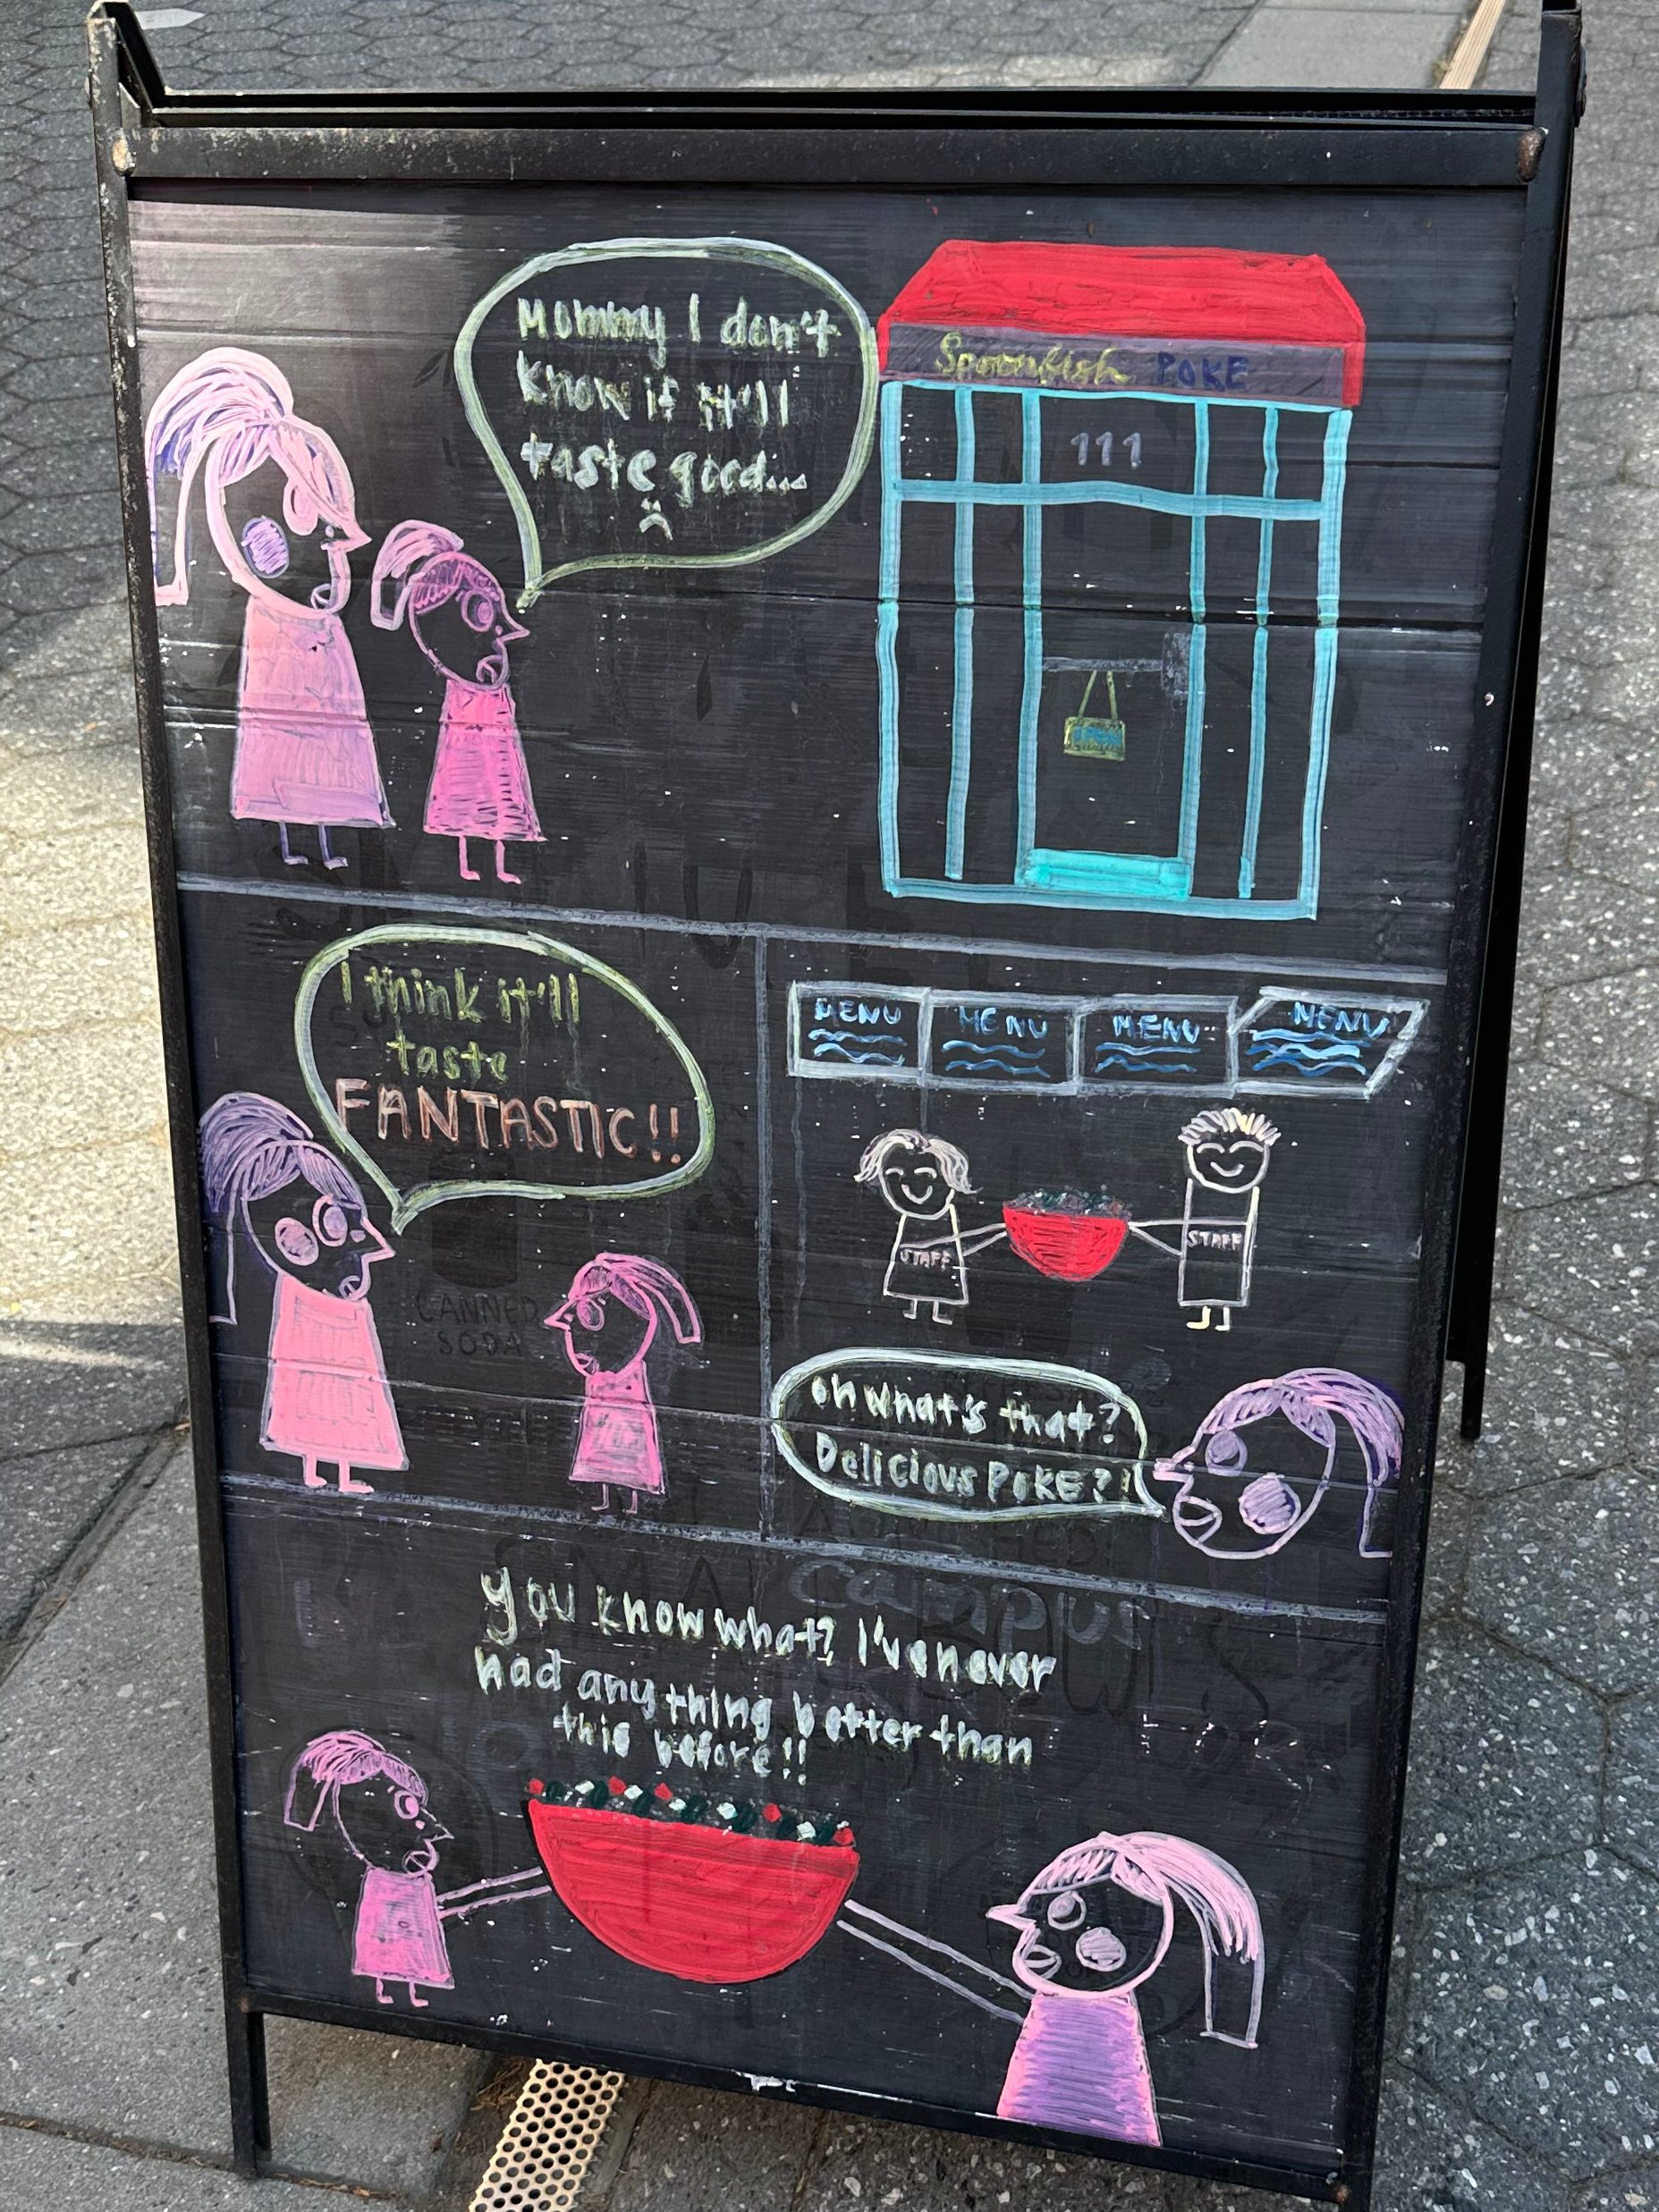 Mommy I don't
know if it'll
taste good...
Spoonfish POKE
111
OPEN
I think it'll
taste
FANTASTIC!!
CANNED
SODA
MENU MENU MENU MENU
STAFF STAFF
oh what's that?
Delicious POKE?!
campus
You know what? I've never
had anything better than
this before!!